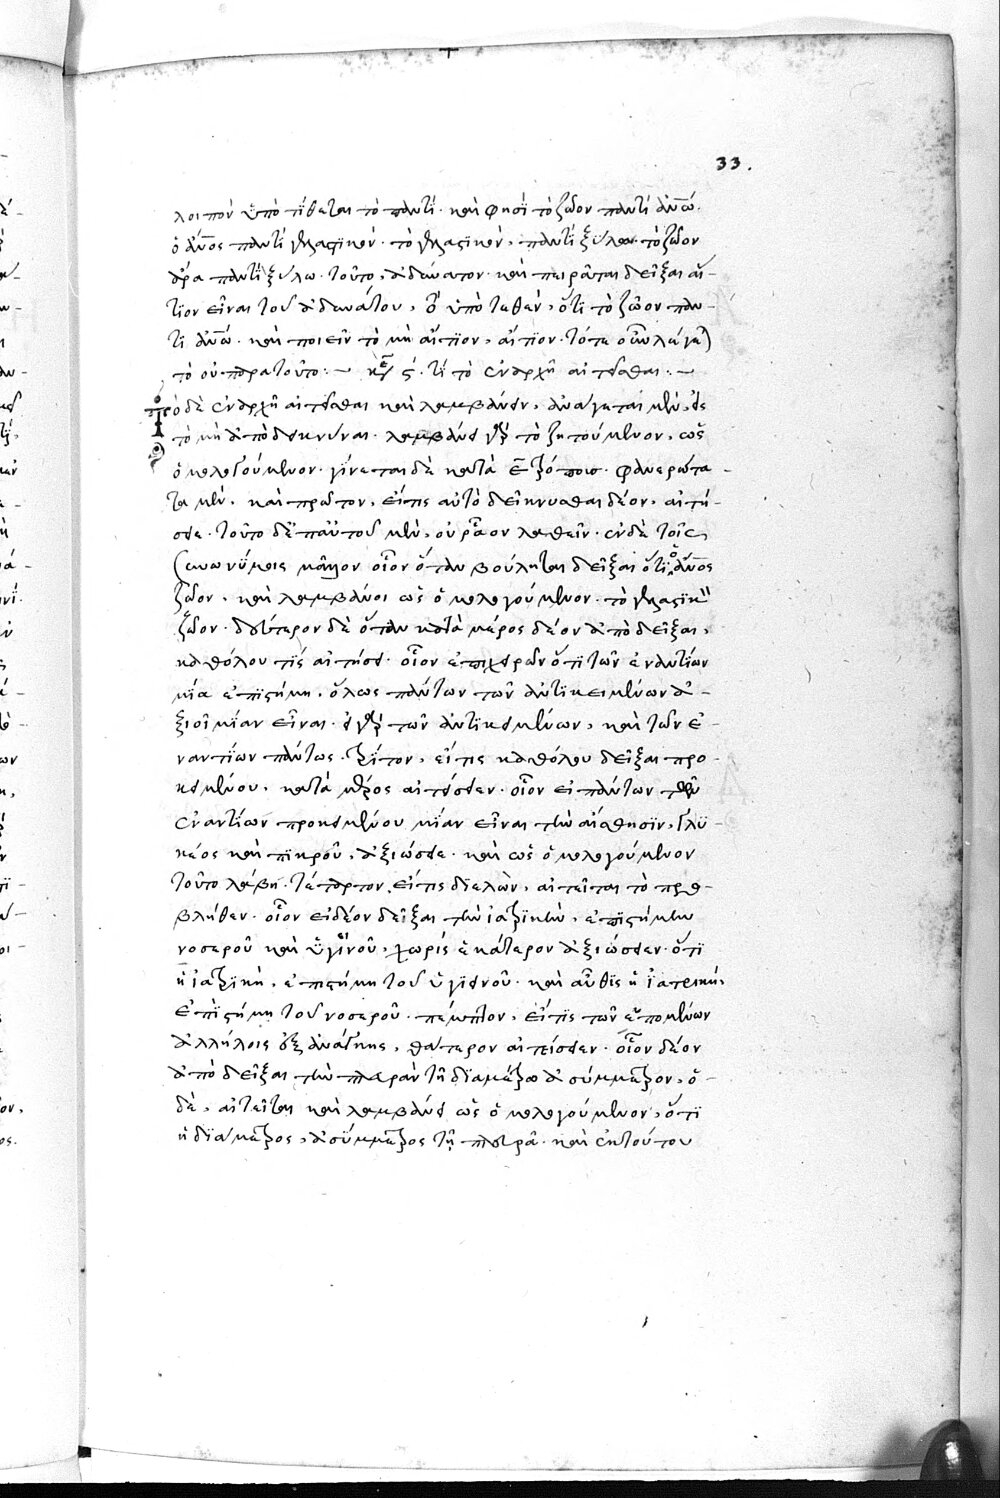 33.
λοιπὸν ὑποτίθεται τὸ παντί· καὶ φησὶ τὸ ζῶον παντὶ ἀνω·
ὁ ἄνος παντὶ γελαστικόν· τὸ γελαστικόν, παντὶ ξύλω· τὸ ζῶον
ἄρα παντὶ ξύλω· τοῦτο, ἀδύνατον· καὶ πειρᾶται δεῖξαι αἴ-
τιον εἶναι τοῦ ἀδυνάτου, τὸ ὑποτεθὲν, ὅτι τὸ ζῶον παν-
τὶ ἀνω· καὶ ποιεῖν τὸ μὴ αἴτιον, αἴτιον· τότε οὖν λέγει
τὸ οὐ παρὰ τοῦτο:— κε ϛ· τί τὸ ἐν ἀρχῆ αἰτεῖσθαι:—
Τὸ δὲ ἐν ἀρχῆ αἰτεῖσθαι καὶ λαμβάνειν, ἀνάγεται μὲν, εἰς
τὸ μὴ ἀποδεικνύναι· λαμβάνει γὰρ τὸ ζητούμενον, ὡς
ὁμολογούμενον· γίνεται δὲ κατὰ ε τρόπους· φανερώτα-
τα μὲν, καὶ πρῶτον, εἴ τις αὐτὸ δείκνυσθαι δέον, αἰτή-
σει· τοῦτο δ' ἐπ' αὐτοῦ μὲν, οὐ ῥάδιον λαθεῖν· ἐν δὲ τοῖς
συνωνύμοις μᾶλλον οἷον ὅταν βούληται δεῖξαι ὅτι ὁ ἄνος
ζῶον, καὶ λαμβάνοι ὡς ὁμολογούμενον· τὸ γελαστικὸν
ζῶον· δεύτερον δὲ ὅταν κατὰ μέρος δέον ἀποδεῖξαι,
καθόλου τις αἰτήσει· οἷον ἐπιχειρῶν ὅτι τῶν ἐναντίων
μία ἐπιστήμη, ὅλως πάντων τῶν ἀντικειμένων ἀ-
ξιοῖ μίαν εἶναι· εἰ γὰρ τῶν ἀντικειμένων, καὶ τῶν ἐ-
ναντίων πάντως· τρίτον, εἴ τις καθόλου δεῖξαι προ-
κειμένου, κατὰ μέρος αἰτήσειεν· οἷον εἰ πάντων τῶν
ἐναντίων προκειμένου μίαν εἶναι τὴν αἴσθησιν, γλυ-
κέος καὶ πικροῦ, ἀξιώσει· καὶ ὡς ὁμολογούμενον
τοῦτο λάβη· τέταρτον, εἴ τις διελὼν, αἰτεῖται τὸ προ-
βληθέν· οἷον εἰ δέον δεῖξαι τὴν ἰατρικὴν, ἐπιστήμην
νοσεροῦ καὶ ὑγιεινοῦ, χωρὶς ἑκάτερον ἀξιώσειεν· ὅτι
ἡ ἰατρικὴ, ἐπιστήμη τοῦ ὑγιεινοῦ· καὶ αὖθις ἡ ἰατρικὴ,
ἐπιστήμη τοῦ νοσεροῦ· πέμπτον, εἴ τις τῶν ἑπομένων
ἀλλήλοις ἐξ ἀνάγκης, θάτερον αἰτήσειεν· οἷον δέον
ἀποδεῖξαι τὴν πλευρὰν τῆ διαμέτρω ἀσύμμετρον, ὁ
δὲ, αἰτεῖται καὶ λαμβάνει ὡς ὁμολογούμενον, ὅτι
ἡ διάμετρος, ἀσύμμετρος τῆ πλευρᾶ· καὶ ἐκ τούτου